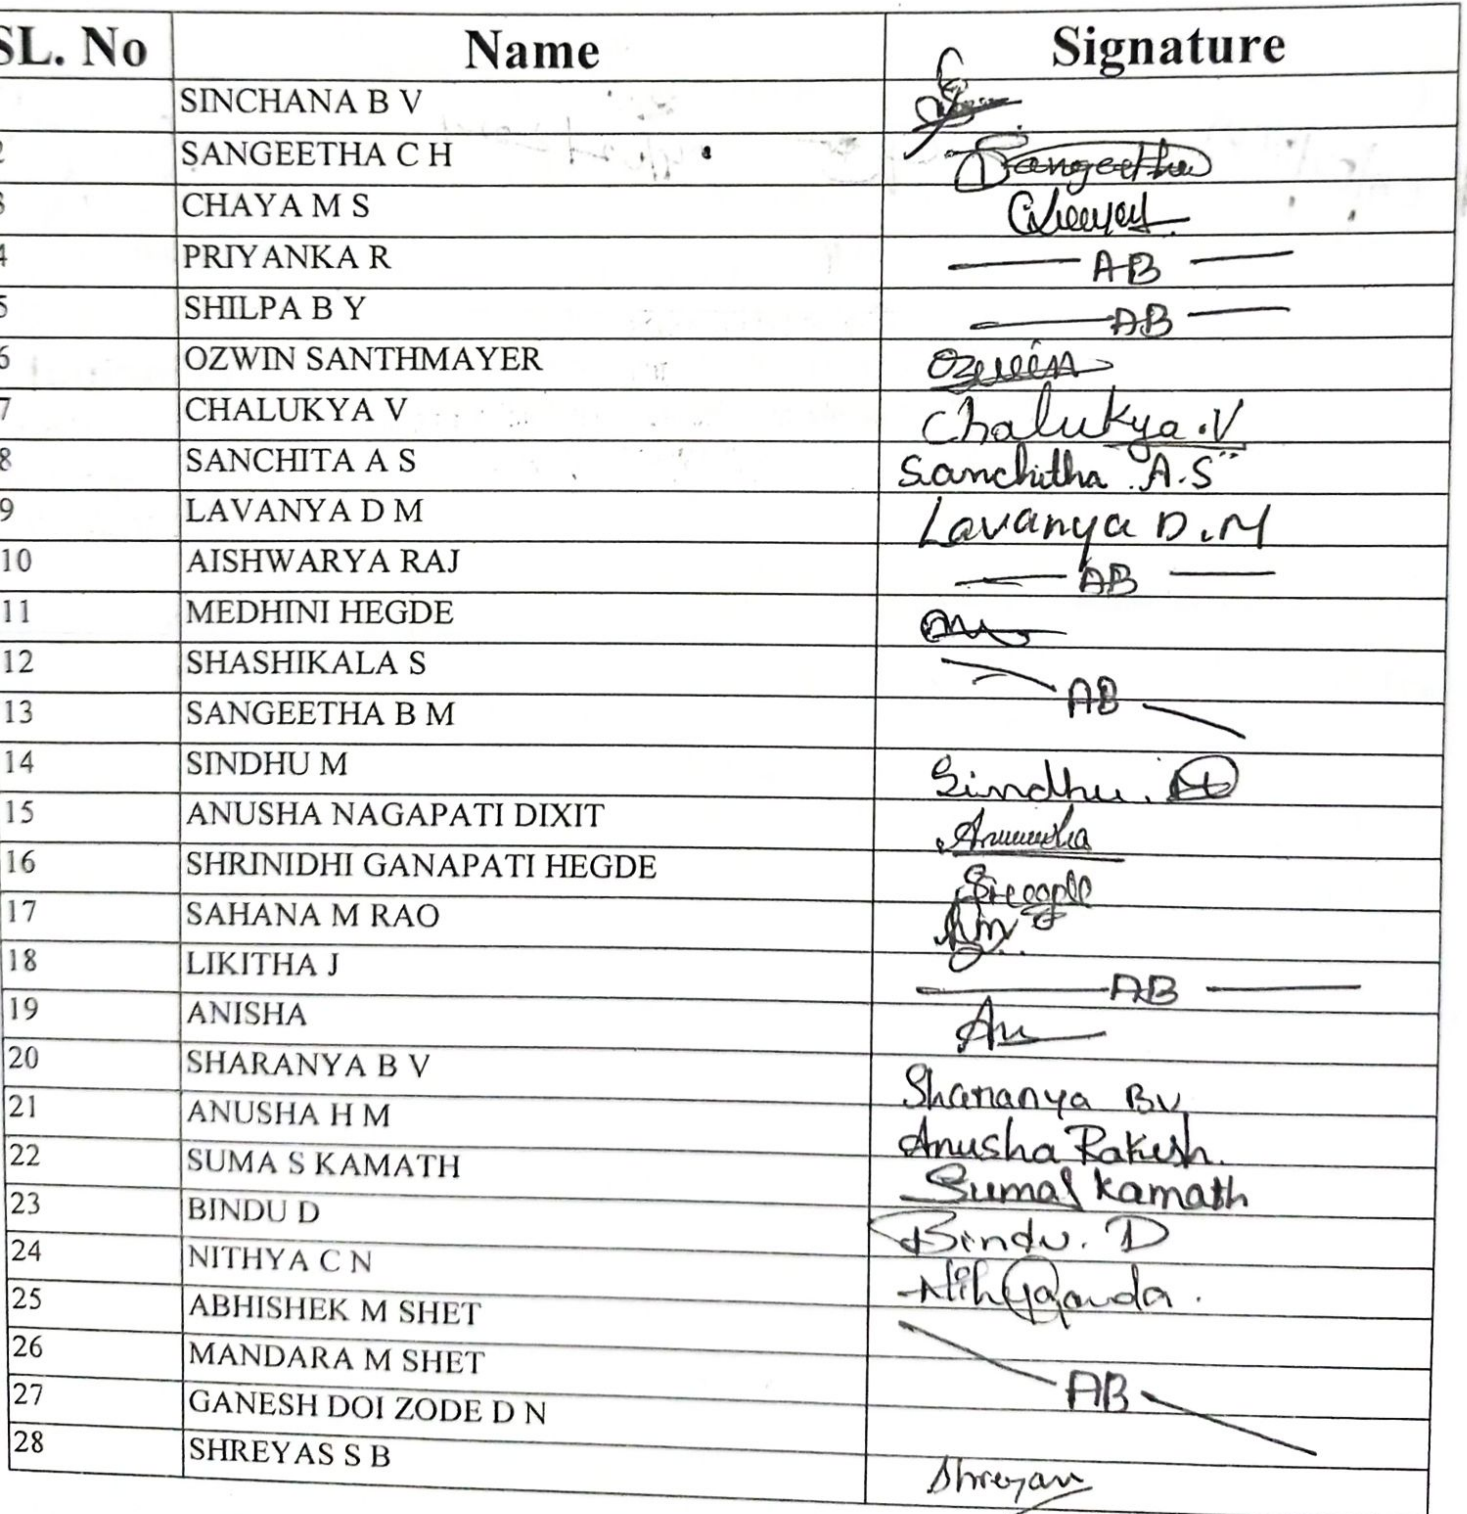 SL. No Name Signature
SINCHANA B V
2 SANGEETHA C H Sangeetha
3 CHAYA M S
4 PRIYANKA R AB
5 SHILPA B Y AB
6 OZWIN SANTHMAYER Ozwin
7 CHALUKYA V Chalukya .V
8 SANCHITA A S Sanchitha A.S
9 LAVANYA D M Lavanya D.M
10 AISHWARYA RAJ AB
11 MEDHINI HEGDE
12 SHASHIKALA S AB
13 SANGEETHA B M
14 SINDHU M Sindhu.
15 ANUSHA NAGAPATI DIXIT
16 SHRINIDHI GANAPATI HEGDE
17 SAHANA M RAO
18 LIKITHA J AB
19 ANISHA An
20 SHARANYA B V Sharanya BV
21 ANUSHA H M Anusha Rakesh.
22 SUMA S KAMATH Suma S Kamath
23 BINDU D Bindu. D
24 NITHYA C N
25 ABHISHEK M SHET
26 MANDARA M SHET AB
27 GANESH DOI ZODE D N
28 SHREYAS S B Shreyas